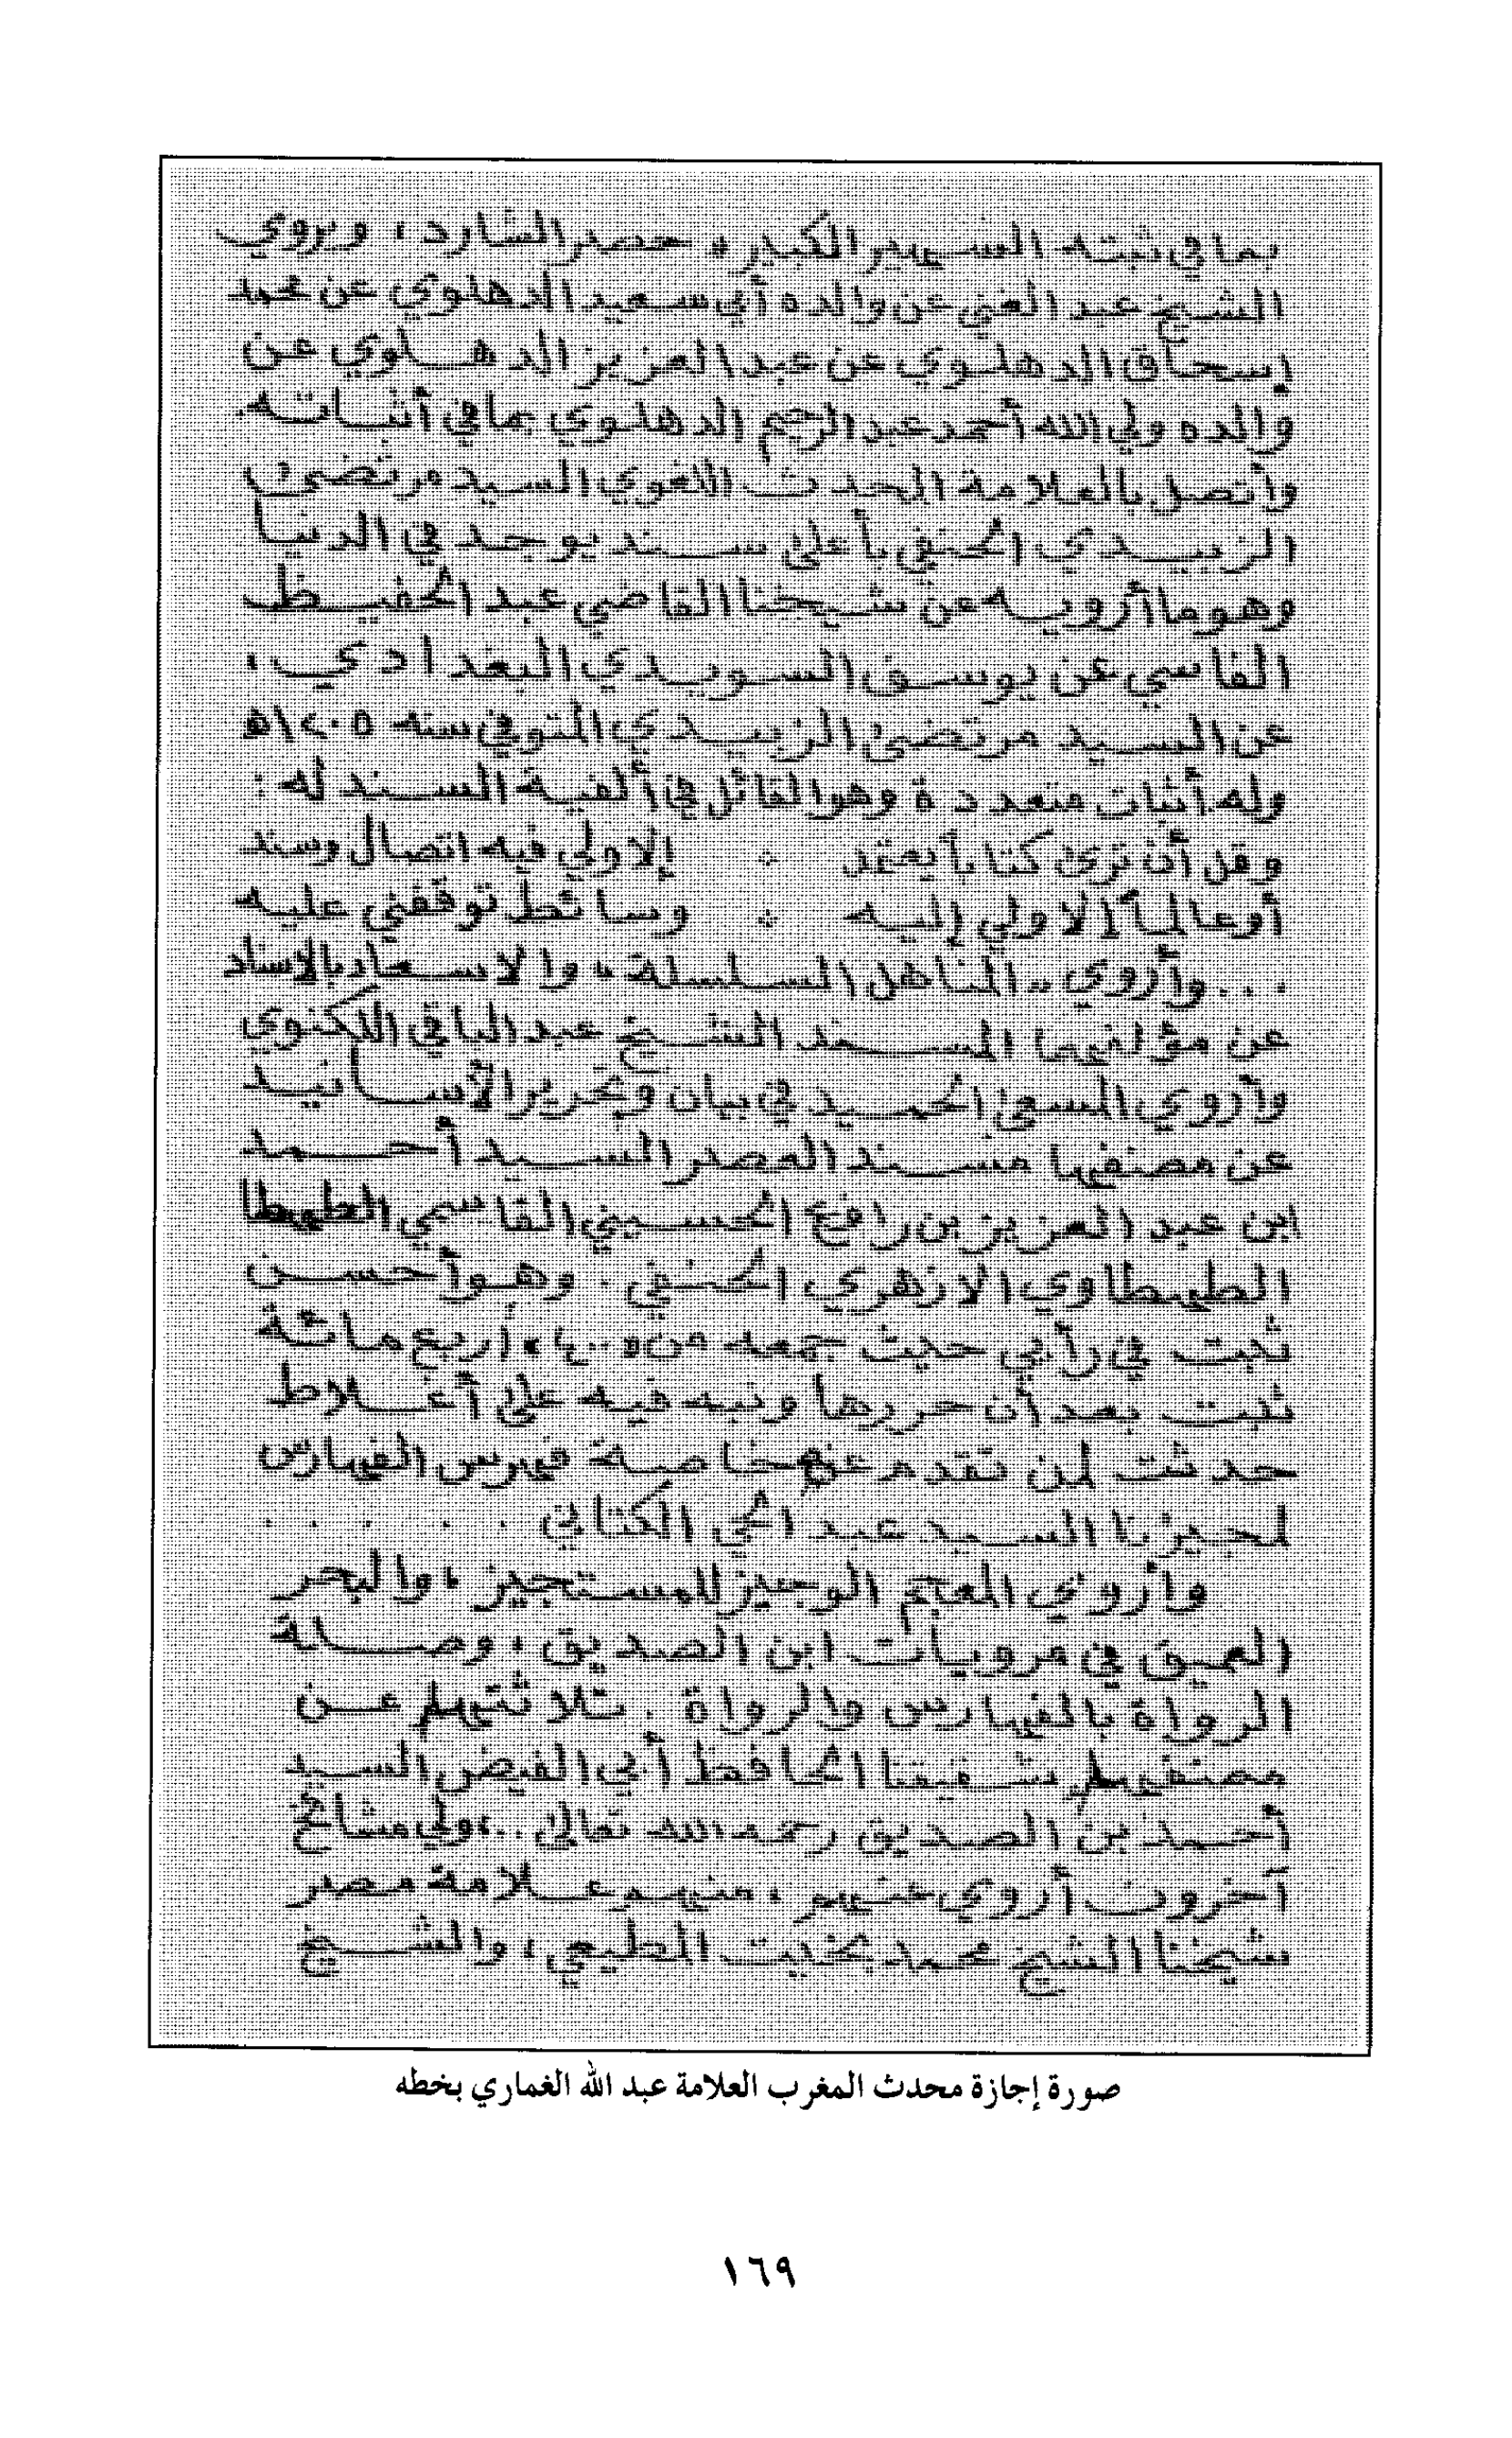 بما في ثبته الشهير الكبير « حصر الشارد ، ويروي
الشيخ عبد الغني عن والده أبي سعيد الدهلوي عن محمد
إسحاق الدهلوي عن عبد العزيز الدهلوي عن
والده ولي الله أحمد عبد الرحيم الدهلوي بما في أثباته.
وأتصل بالعلامة المحدث اللغوي السيد مرتضى
الزبيدي الحنفي بأعلى سند يوجد في الدنيا
وهو ما أرويه عن شيخنا القاضي عبد الحفيظ
الفاسي عن يوسف السويدي البغدادي ،
عن السيد مرتضى الزبيدي المتوفى سنة ١٢٠٥ه
وله أثبات متعددة وهو القائل في ألفية السند له :
وقل أن ترى كتاباً يعتمد ∴ إلا ولي فيه اتصال وسند
أو عالماً إلا ولي إليه ∴ وسائط توقفني عليه
... وأروي .. المناهل السلسلة ، والاسعاد بالاسناد
عن مؤلفهما المسند الشيخ عبد الباقي اللكنوي
وأروي المسعى الحميد في بيان وتحرير الأسانيد
عن مصنفها مسند العصر السيد أحمد
ابن عبد العزيز بن رافع الحسيني القاسمي
الطهطاوي الازهري الحنفي . وهو أحسن
ثبت في رأيي حيث جمعه من « ٤٠٠ » أربع مائة
ثبت بعد أن حررها ونبه فيه على أغلاط
حدثت لمن تقدم خاصة فهرس الفهارس
لمجيزنا السيد عبد الحي الكتاني . . . . .
وأروي المعجم الوجيز للمستجيز ، والبحر
العميق في مرويات ابن الصديق ، وصلة
الرواة بالفهارس والرواة . ثلاثتهم عن
شقيقنا الحافظ أبي الفيض السيد
أحمد بن الصديق رحمه الله تعالى ..، ولي مشائخ
آخرون أروي عنهم ، منهم علامة مصر
شيخنا الشيخ محمد بخيت المطيعي ، والشيخ
صورة إجازة محدث المغرب العلامة عبد الله الغماري بخطه
١٦٩